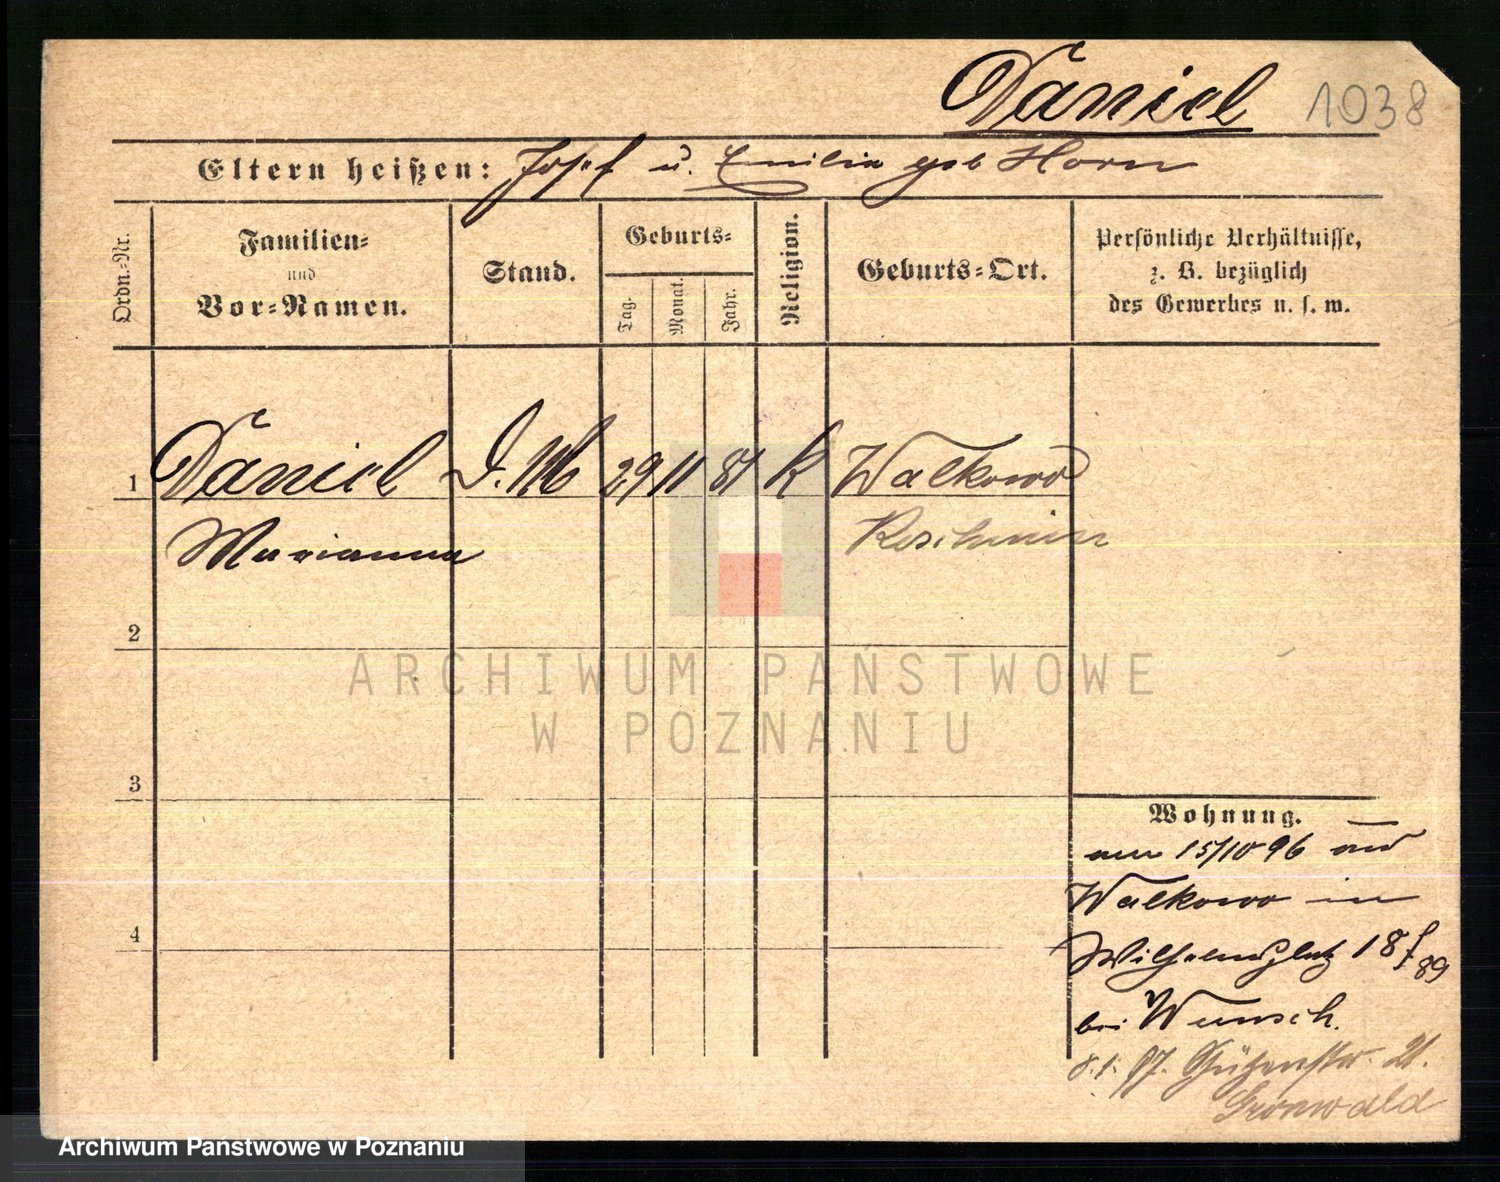 Daniel 1038
Eltern heißen: Josef u. Emilia geb Horn
Ordn.-Nr.
Familien-
und
Vor-Namen.
Stand.
Geburts-
Tag.
Monat.
Jahr.
Religion.
Geburts-Ort.
Persönliche Verhältnisse,
z. B. bezüglich
des Gewerbes u. s. w.
1 Daniel D. M 29 11 81 K Walkowo
Marianna Koschmin
2
ARCHIWUM PAŃSTWOWE
W POZNANIU
3
Wohnung.
am 15/10 96 aus
Walkowo in
Wilhelmsplatz 18
89
bei Wunsch.
8.1.97. Schützenstr. 21.
Gronwald
4
Archiwum Państwowe w Poznaniu